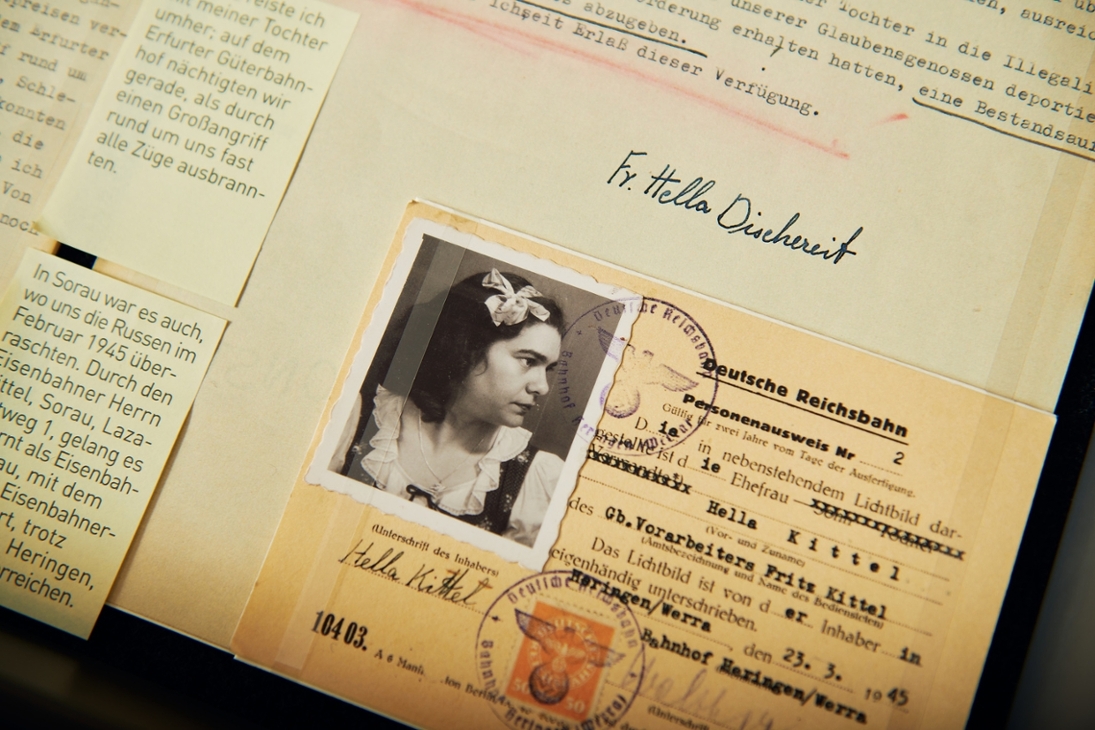 reiste ich
mit meiner Tochter
umher; auf dem
Erfurter Güterbahn-
hof nächtigten wir
gerade, als durch
einen Großangriff
rund um uns fast
alle Züge ausbrann-
ten.
In Sorau war es auch,
wo uns die Russen im
Februar 1945 über-
raschten. Durch den
Eisenbahner Herrn
ttel, Sorau, Laza-
tweg 1, gelang es
rnt als Eisenbah-
au, mit dem
Eisenbahner-
rt, trotz
Heringen,
rreichen.
preisen ver-
em Erfurter
f rund um
e Schle-
konnten
die
ich
Von
noch
Tochter in die Illegali
unserer Glaubensgenossen deportie
orderung erhalten hatten, eine Bestandsau
abzugeben.
Ich seit Erlaß dieser Verfügung.
Fr. Hella Dischereit
Deutsche Reichsbahn
Personenausweis Nr 2
Gültig für zwei Jahre vom Tage der Ausfertigung.
D ie in nebenstehendem Lichtbild dar-
gestellte ist d ie Ehefrau
Hella Kittel
(Vor- und Zuname)
des Gb.Vorarbeiters Fritz Kittel
(Amtsbezeichnung und Name des Bediensteten)
Das Lichtbild ist von d er Inhaber in
eigenhändig unterschrieben.
Heringen/Werra, den 23. 3. 1945
Bahnhof Heringen/Werra
(Unterschrift des Inhabers)
Hella Kittel
104 03.
Deutsche Reichsbahn
Bahnhof
Deutsche Reichsbahn